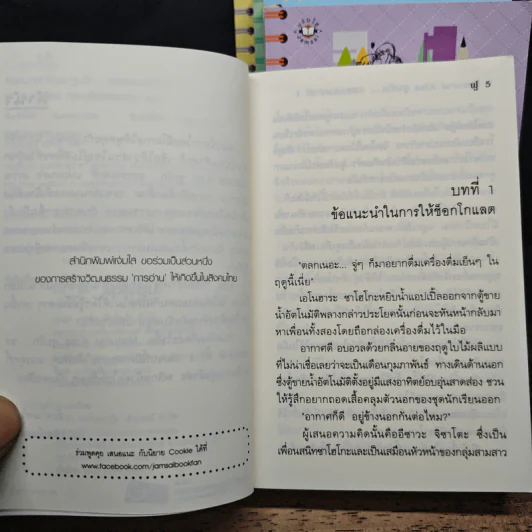 สำนักพิมพ์แจ่มใส ขอร่วมเป็นส่วนหนึ่ง
ของการสร้างวัฒนธรรม 'การอ่าน' ให้เกิดขึ้นในสังคมไทย
ร่วมพูดคุย เสนอแนะ กับนิยาย Cookie ได้ที่
www.facebook.com/jamsaibookfan
5
บทที่ 1
ข้อแนะนำในการให้ช็อกโกแลต
"ตลกเนอะ... จู่ๆ ก็มาอยากดื่มเครื่องดื่มเย็นๆ ใน
ฤดูนี้เนี่ย"
เอโนฮาระ ซาโฮโกะหยิบน้ำแอปเปิ้ลออกจากตู้ขาย
น้ำอัตโนมัติพลางกล่าวประโยคนั้นก่อนจะหันหน้ากลับมา
หาเพื่อนทั้งสองโดยถือกล่องเครื่องดื่มไว้ในมือ
อากาศดี อบอวลด้วยกลิ่นอายของฤดูใบไม้ผลิแบบ
ที่ไม่น่าเชื่อเลยว่าจะเป็นเดือนกุมภาพันธ์ ทางเดินด้านนอก
ซึ่งตู้ขายน้ำอัตโนมัติตั้งอยู่มีแสงอาทิตย์อบอุ่นสาดส่อง ชวน
ให้รู้สึกอยากถอดเสื้อคลุมตัวนอกของชุดนักเรียนออก
"อากาศก็ดี อยู่ข้างนอกกันต่อไหม?"
ผู้เสนอความคิดนั้นคืออิซาวะ จิซาโตะ ซึ่งเป็น
เพื่อนสนิทซาโฮโกะและเป็นเสมือนหัวหน้าของกลุ่มสามสาว